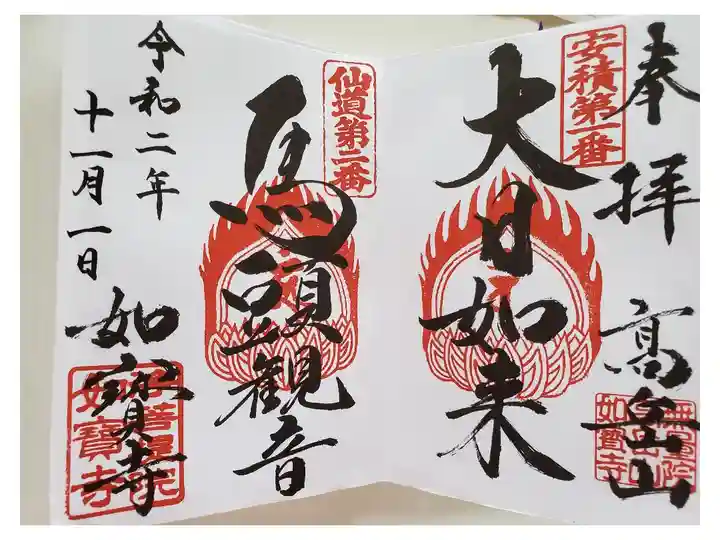 奉拝
高岳山
安積第一番
大日如来
仙道第二番
馬頭観音
令和二年
十一月一日
如寳寺
如寶寺
如寶寺